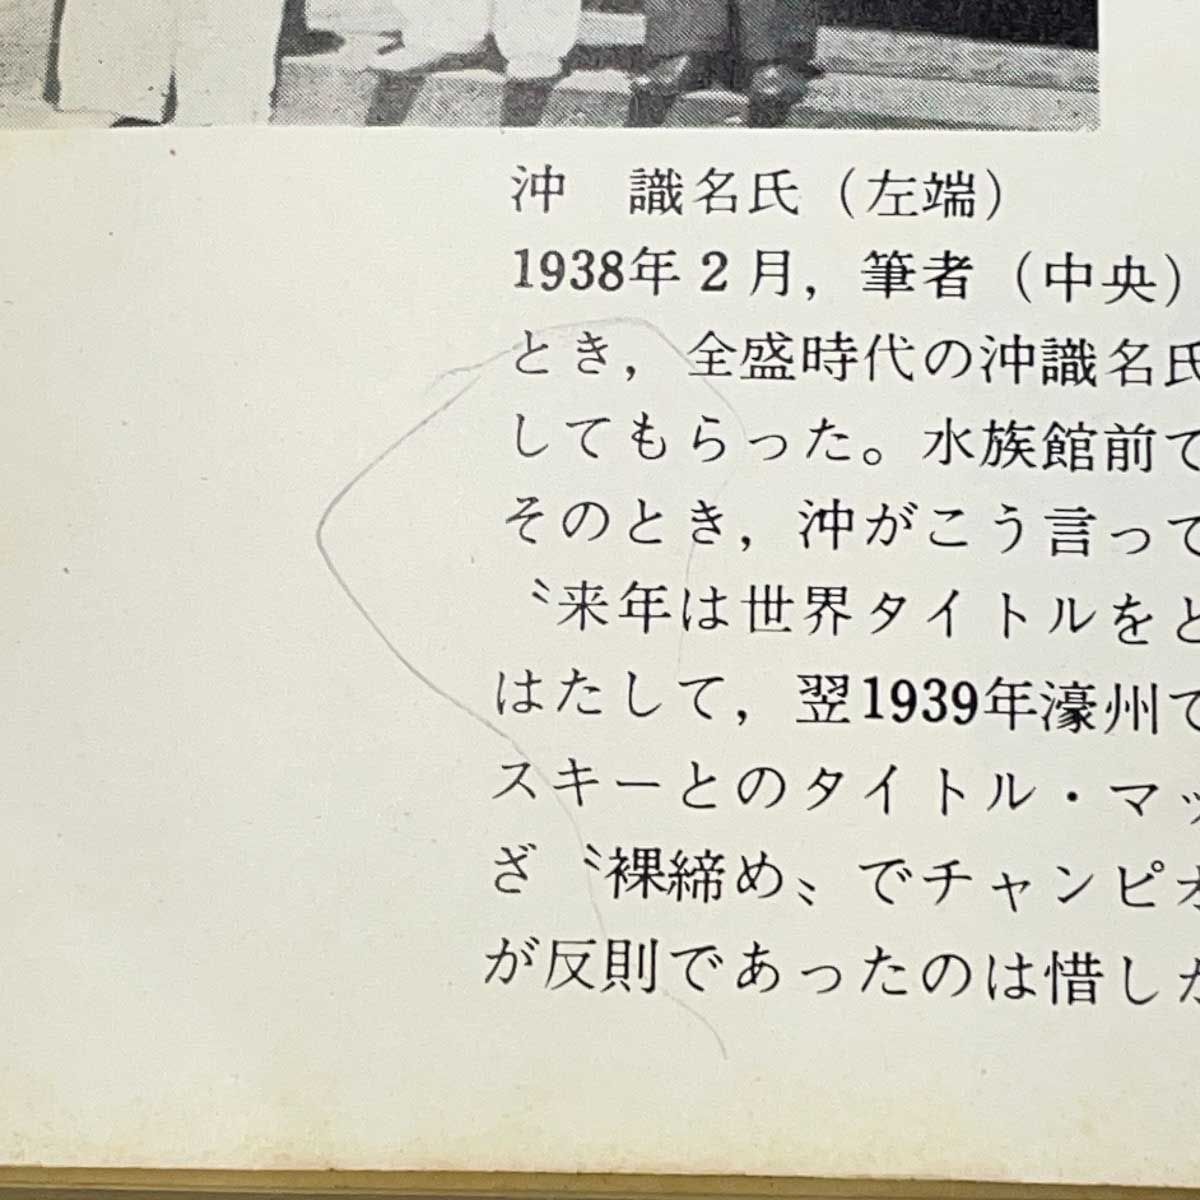 沖　識名氏（左端）
1938年２月，筆者（中央）
とき，全盛時代の沖識名氏
してもらった。水族館前で
そのとき，沖がこう言って
〝来年は世界タイトルをと
はたして，翌1939年濠州で
スキーとのタイトル・マッ
ざ〝裸締め〟でチャンピオ
が反則であったのは惜しか